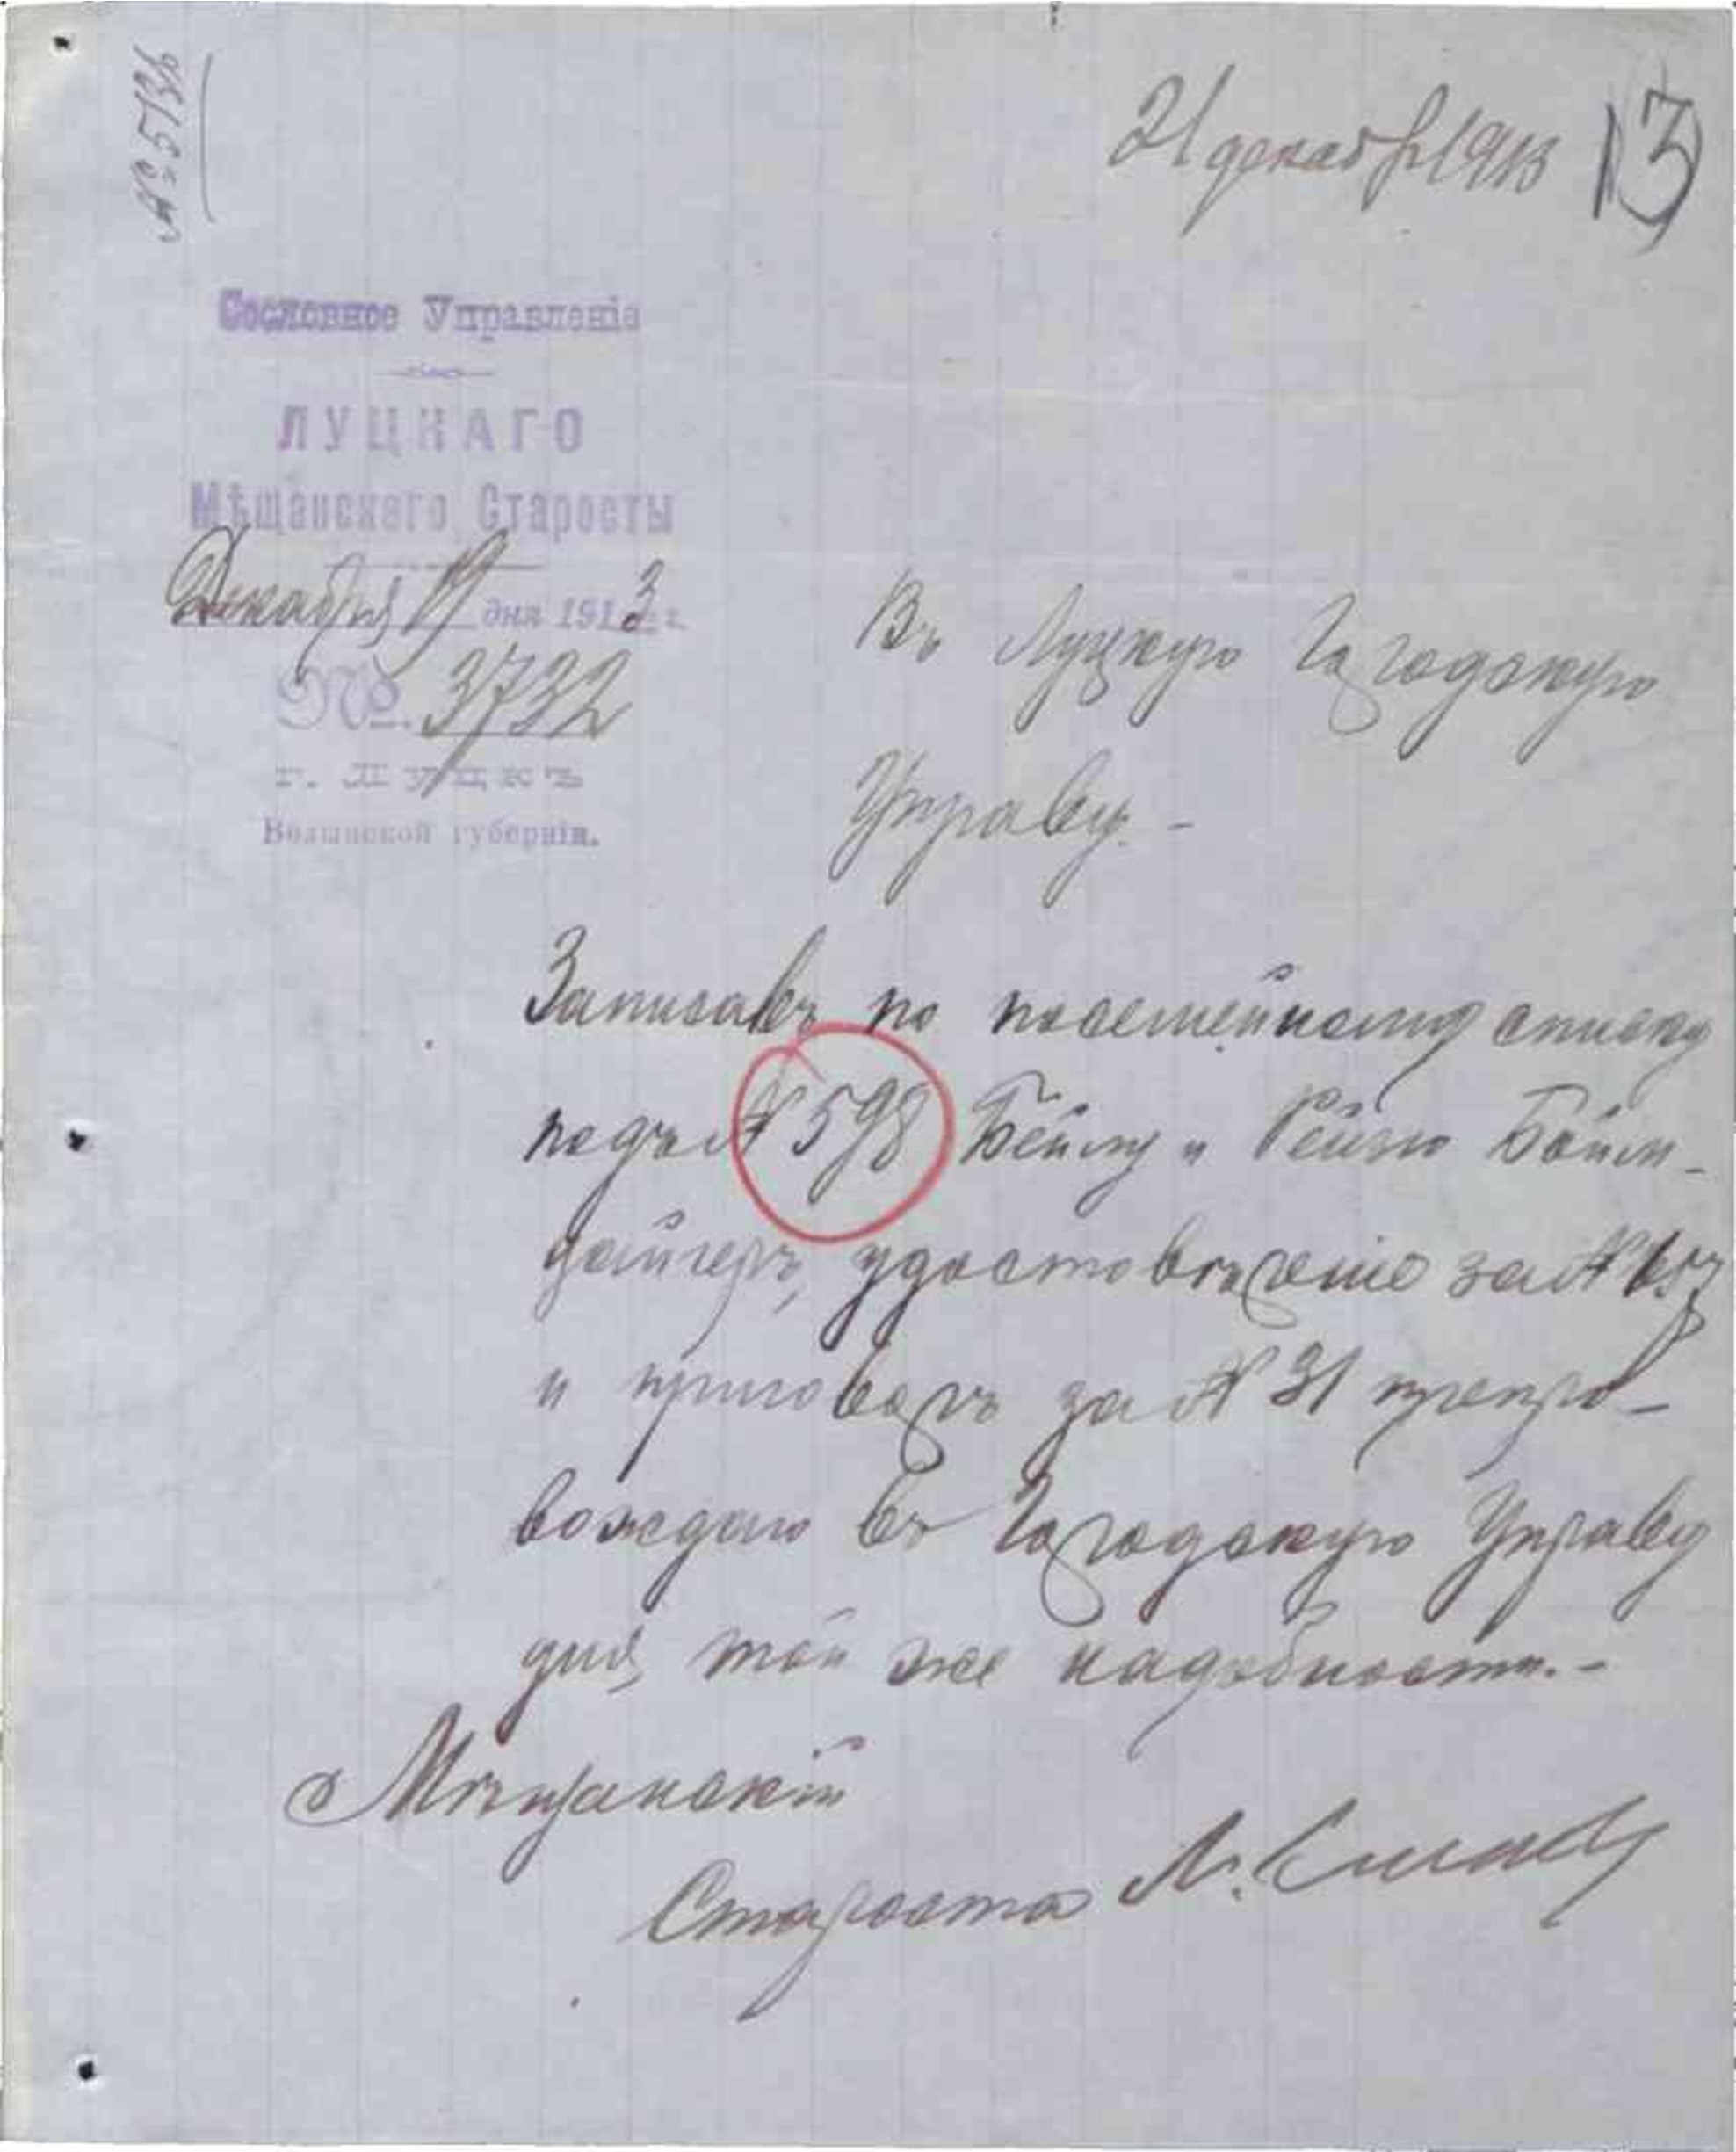 21 декабр 1913
13
Сословное Управленіе
ЛУЦКАГО
Мѣщанскаго Старосты
Декабря 19 дня 1913 г.
№ 3732
г. Луцкъ
Волынской губерніи.
Въ Луцкую Городскую
Управу.-
Записавъ по посемейному списку
подъ № 598 Бейлу и Рейзю Бойм-
удостовѣреніе за №
и приговоръ за № 31 препро-
вождаю въ Городскую Управу
для той же надобности.-
Мѣщанскій
Староста